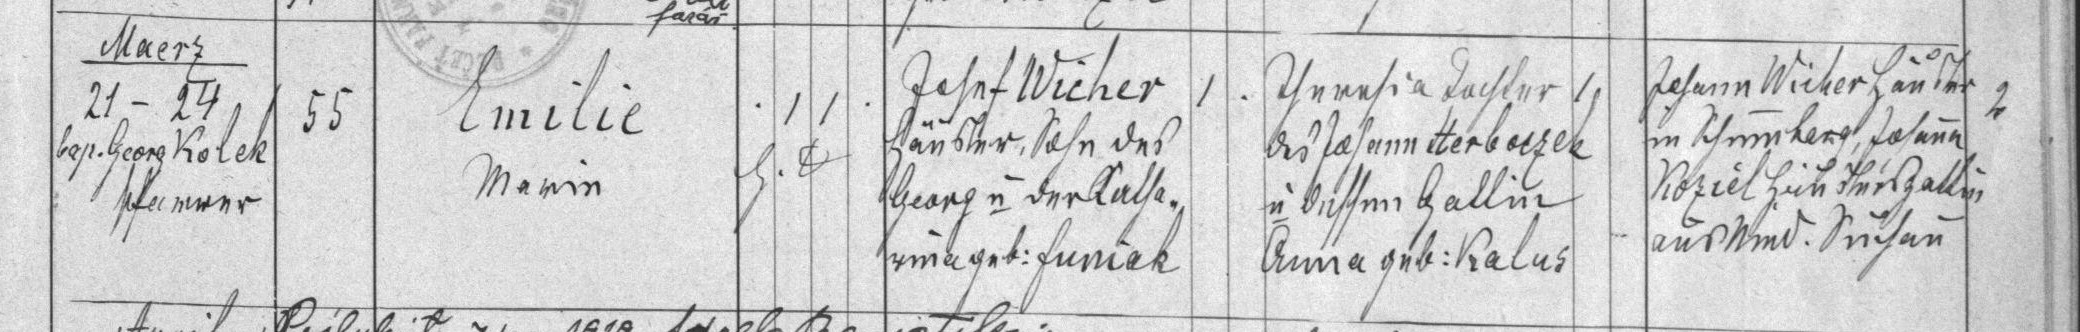 farář
Maerz
21 - 24
bap. Georg Kolek
Pfarrer
55
Emilie
Marie
. 1 1 .
Josef Wicher
Häusler, Sohn des
Georg u der Katha-
rina geb: Funiok
1 .
Theresia Tochter
des Johann Herboczek
u dessen Gattin
Anna geb: Kalus
1
Johann Wicher Häusler
in Schumbarg, Johanna
Koziel Häuslers Gattin
aus Nied. Suchau
2
April